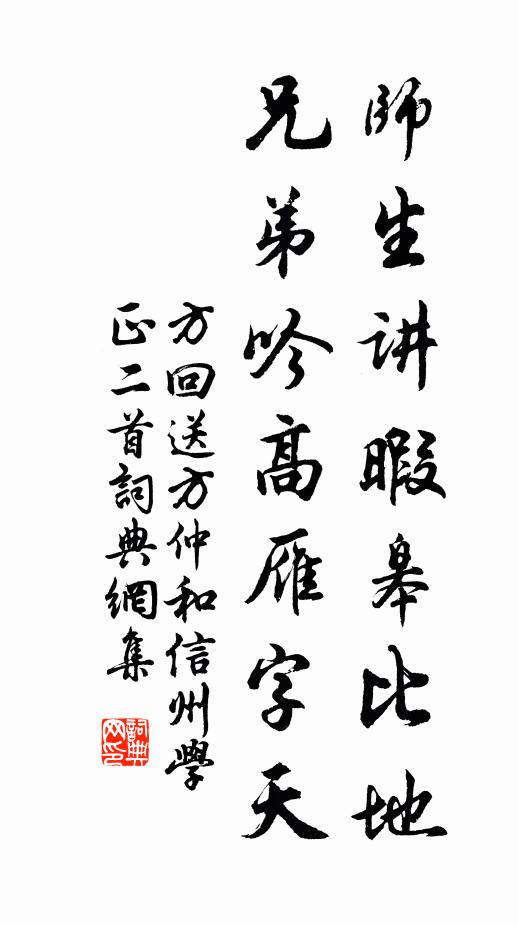 師生讲暇皋比地
兄弟吟高雁字天
方回送方仲和信州學
正二首詞典網集
詞典网印